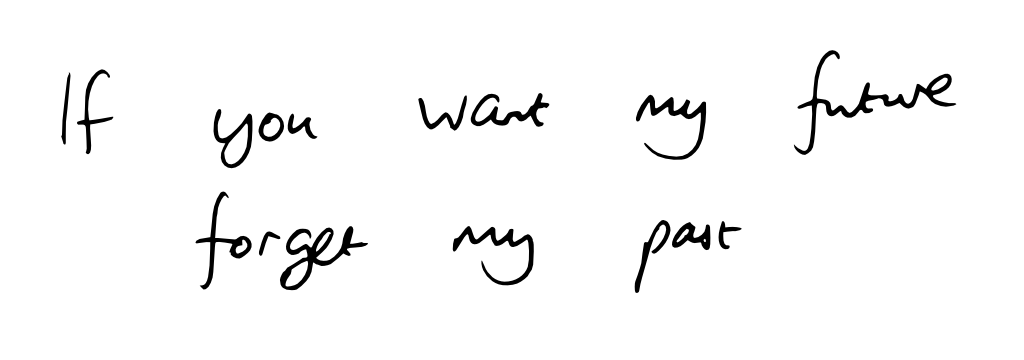 If you want my future
forget my past